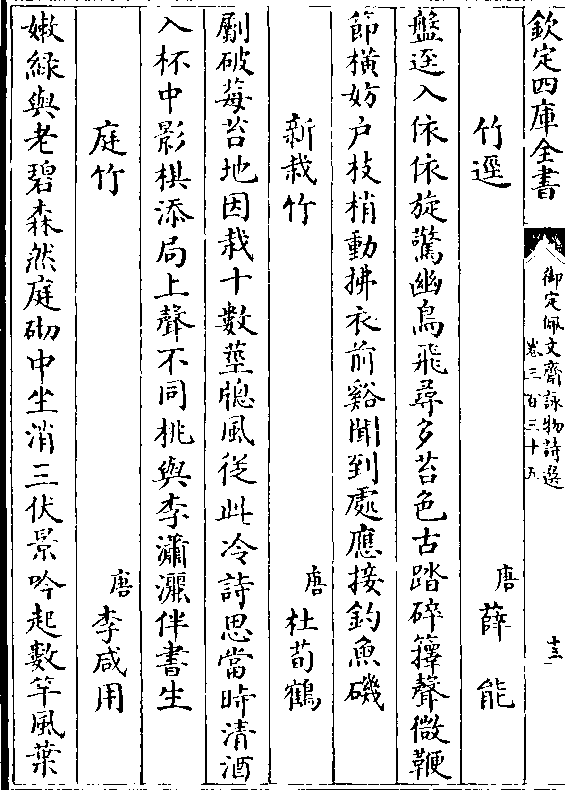 欽定四庫全書
御定佩文齋詠物詩選
卷三百三十五
十三
竹逕
唐 薛 能
盤逕入依依旋驚幽鳥飛尋多苔色古踏碎籜聲微鞭
節橫妨户枝梢動拂衣前谿聞到處應接釣魚磯
新栽竹
唐 杜荀鶴
劚破莓苔地因栽十數莖䆫風從此冷詩思當時清酒
入杯中影棋添局上聲不同桃與李瀟灑伴書生
庭竹
唐 李咸用
嫩綠與老碧森然庭砌中坐消三伏景吟起數竿風葉